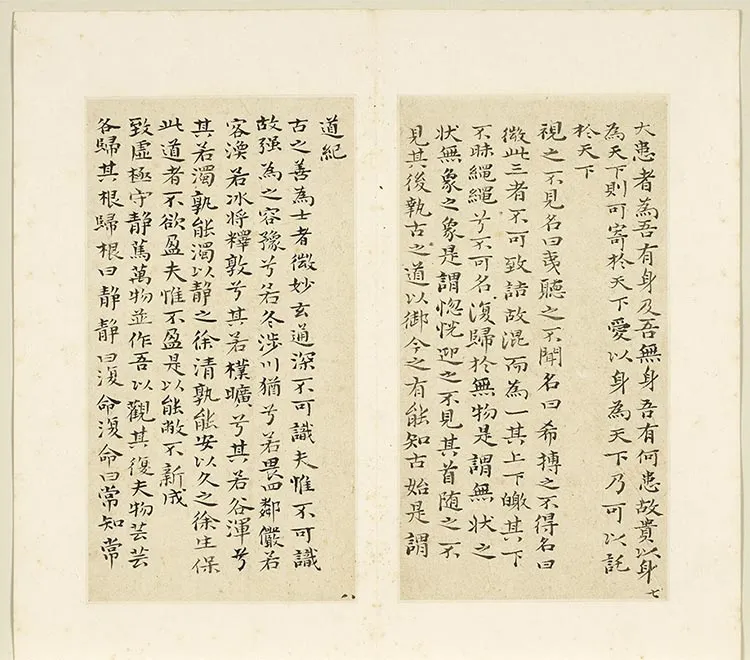 大患者為吾有身及吾無身吾有何患故貴以身
為天下則可寄於天下愛以身為天下乃可以託
於天下
視之不見名曰夷聽之不聞名曰希搏之不得名曰
微此三者不可致詰故混而為一其上下皦其下
不昧繩繩兮不可名復歸於無物是謂無狀之
狀無象之象是謂惚恍迎之不見其首随之不
見其後執古之道以御今之有能知古始是謂
七
道紀
古之善為士者微妙玄通深不可識夫惟不可識
故强為之容豫兮若冬涉川猶兮若畏四鄰儼若
容渙若冰將釋敦兮其若樸曠兮其若谷渾兮
其若濁孰能濁以静之徐清孰能安以久之徐生保
此道者不欲盈夫惟不盈是以能敝不新成
致虛極守静篤萬物並作吾以觀其復夫物芸芸
各歸其根歸根曰静静曰復命復命曰常知常
八